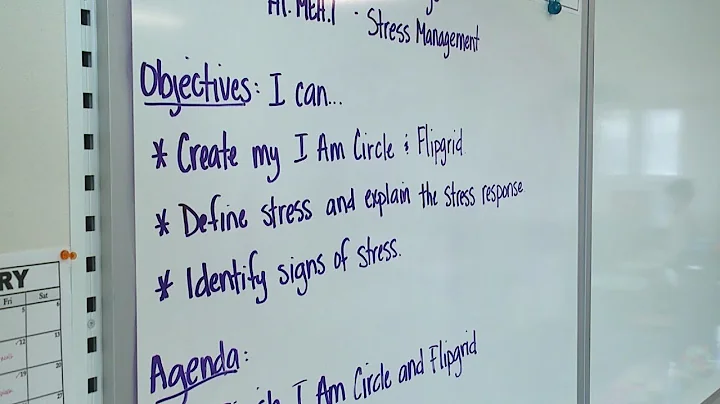 Stress Management
Objectives: I can...
* Create my I Am Circle & Flipgrid
* Define stress and explain the stress response
* Identify signs of stress.
Agenda:
I Am Circle and Flipgrid
RY
Fri Sat
5 6
12 13
19 20
27